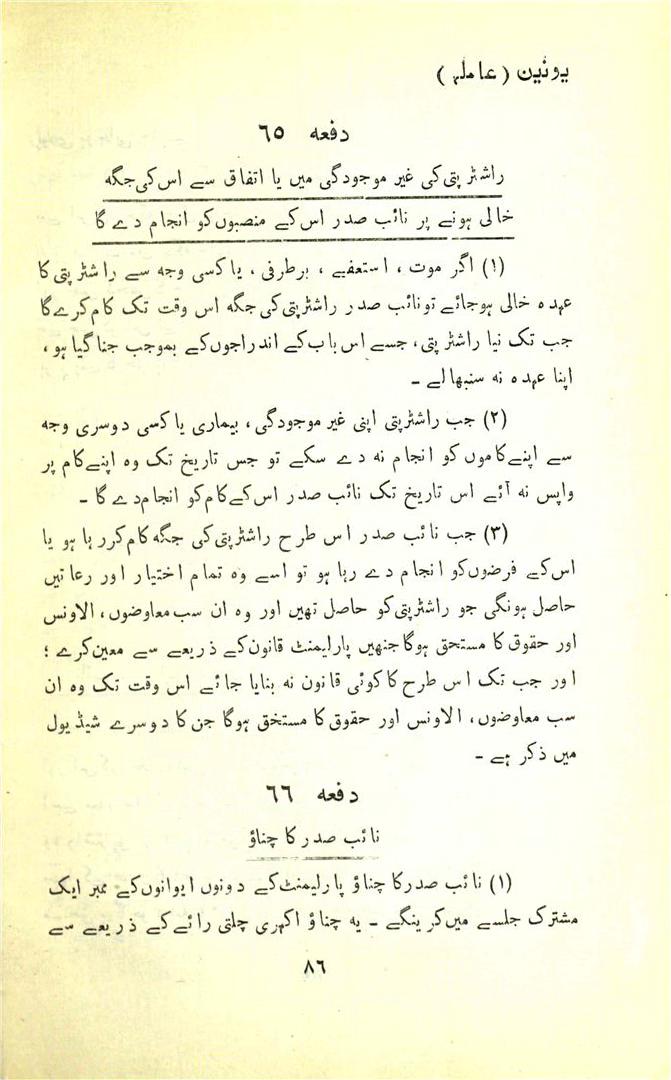 یونین (عاملہ)
دفعہ ٦٥
راشٹرپتی کی غیر موجودگی میں یا اتفاق سے اس کی جگہ
خالی ہونے پر نائب صدر اس کے منصبوں کو انجام دے گا
(۱) اگر موت ، استعفیے ، برطرفی ، یا کسی وجہ سے راشٹرپتی کا
عہدہ خالی ہوجائے تو نائب صدر راشٹرپتی کی جگہ اس وقت تک کام کرے گا
جب تک نیا راشٹرپتی ، جسے اس باب کے اندراجوں کے بموجب چنا گیا ہو ،
اپنا عہدہ نہ سنبھالے ۔
(۲) جب راشٹرپتی اپنی غیر موجودگی ، بیماری یا کسی دوسری وجہ
سے اپنے کاموں کو انجام نہ دے سکے تو جس تاریخ تک وہ اپنے کام پر
واپس نہ آئے اس تاریخ تک نائب صدر اس کے کام کو انجام دے گا ۔
(۳) جب نائب صدر اس طرح راشٹرپتی کی جگہ کام کر رہا ہو یا
اس کے فرضوں کو انجام دے رہا ہو تو اسے وہ تمام اختیار اور رعائتیں
حاصل ہونگی جو راشٹرپتی کو حاصل تھیں اور وہ ان سب معاوضوں ، الاونس
اور حقوق کا مستحق ہوگا جنھیں پارلیمنٹ قانون کے ذریعے سے معین کرے ؛
اور جب تک اس طرح کا کوئی قانون نہ بنایا جائے اس وقت تک وہ ان
سب معاوضوں ، الاونس اور حقوق کا مستحق ہوگا جن کا دوسرے شیڈیول
میں ذکر ہے ۔
دفعہ ٦٦
نائب صدر کا چناؤ
(۱) نائب صدر کا چناؤ پارلیمنٹ کے دونوں ایوانوں کے ممبر ایک
مشترک جلسے میں کرینگے ۔ یہ چناؤ اکہری چلتی رائے کے ذریعے سے
٨٦